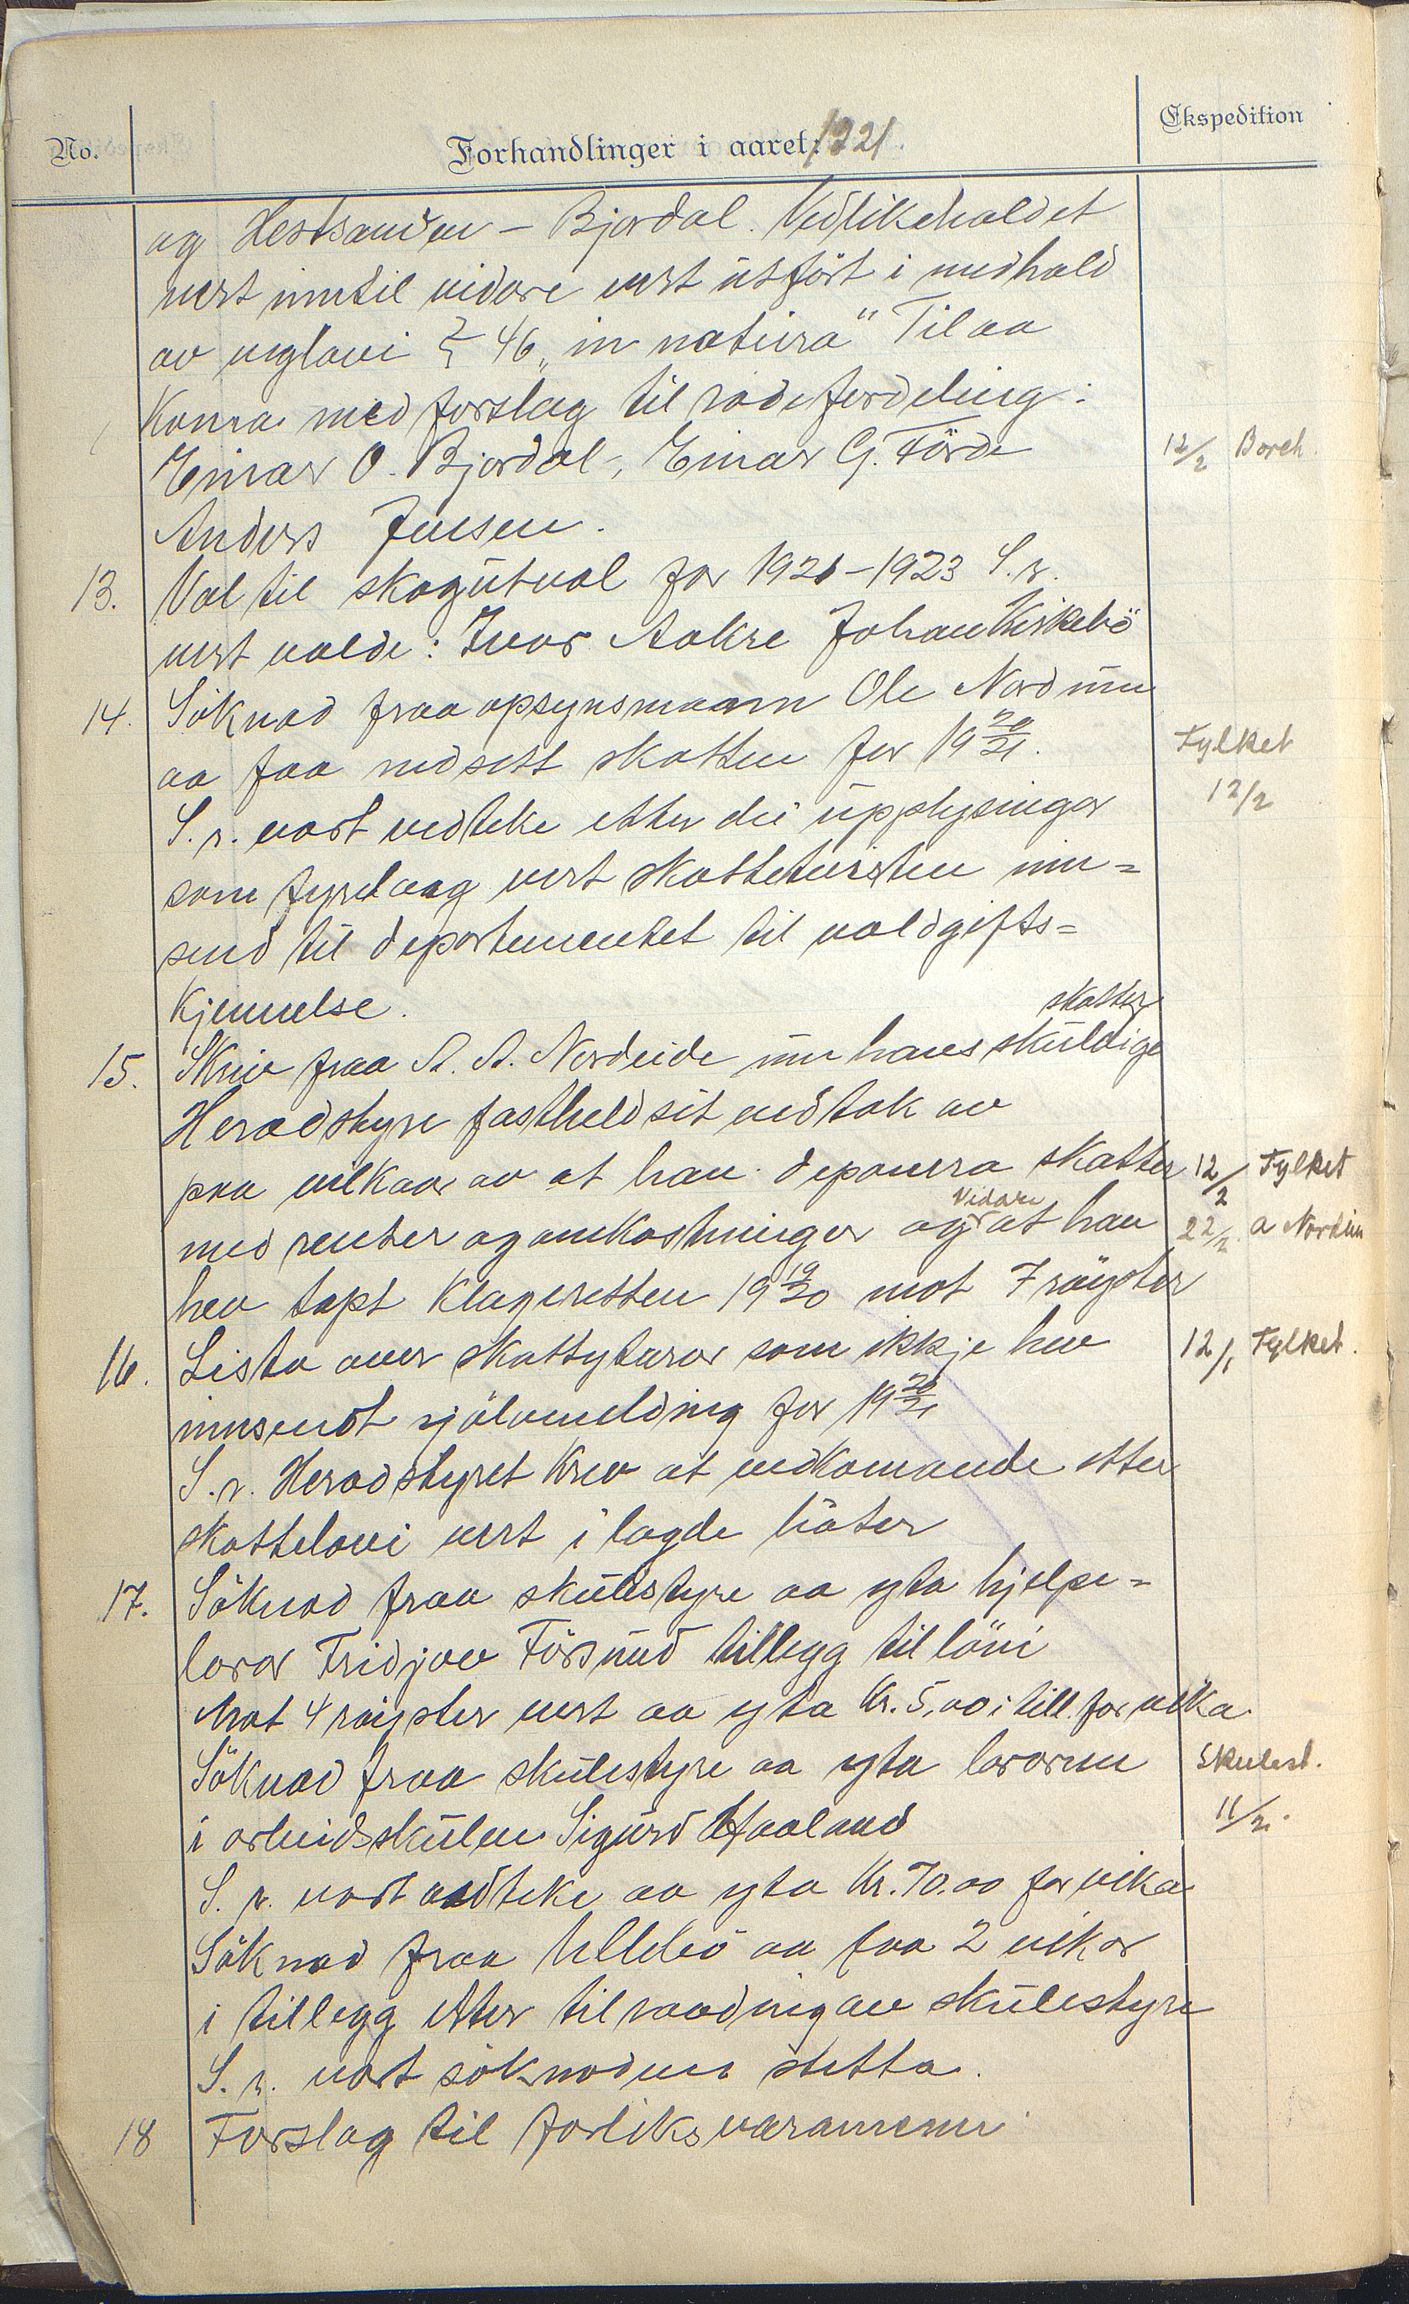 No.
Forhandlinger i aaret: 1921.
Ekspedition
og Hestsanden - Bjordal. Vedlikehaldet
vert inntil vidare vert utført i medhald
av veglovi § 46 „in natura" Til aa
Koma med forslag til rodefordeling:
Einar O. Bjordal, Einar G. Förde
12/2 Borch.
Anders Jensen.
13. Val til skogutval for 1921-1923 S.r.
vert valde: Ivar Aakre Johan Kirkebö
14. Söknad fraa opsynsmann Ole Nord um
aa faa nedsett skatten for 19 20/21.
Fylket
12/2
S. r. vart vedteke etter dei upplysingar
som fyrelaag vert skattetvisten inn=
send til departementet til voldgifts=
Kjennelse.
15. Skriv fraa A. A. Nordeide um hans skuldige skatter
Heradstyre fastheld sit vedtak av
paa vilkaar av at han deponera skatter
12/2 Fylket
med renter og omkostninger og Vidare at han
22/2. a Nordeide
hev tapt Klageretten 19 19/20 mot 7 röyster
16. Lista over skattytarar som ikkje hev
12/1 Fylket.
innsendt sjölvmelding for 19 20/21
S. r. Heradstyret Krev at vedkomande etter
skattelovi vert i lagde böter
17. Söknad fraa skulestyre aa yta hjelpe=
lärar Fridjov Försund tillegg til löni
Mot 4 röyster vert aa yta Kr. 5,00 i till. for vika
Söknad fraa skulestyre aa yta lararen
Skulest.
i arbeidsskulen Sigurd Haaland
11/2.
S. r. vart vedteke aa yta Kr. 70.00 for vika
Söknad fraa Ulleb​ö aa faa 2 vikor
i tillegg etter tilraading av skulestyre
S. r. vart söknaden stetta.
18 Forslag til forliksvaramenn